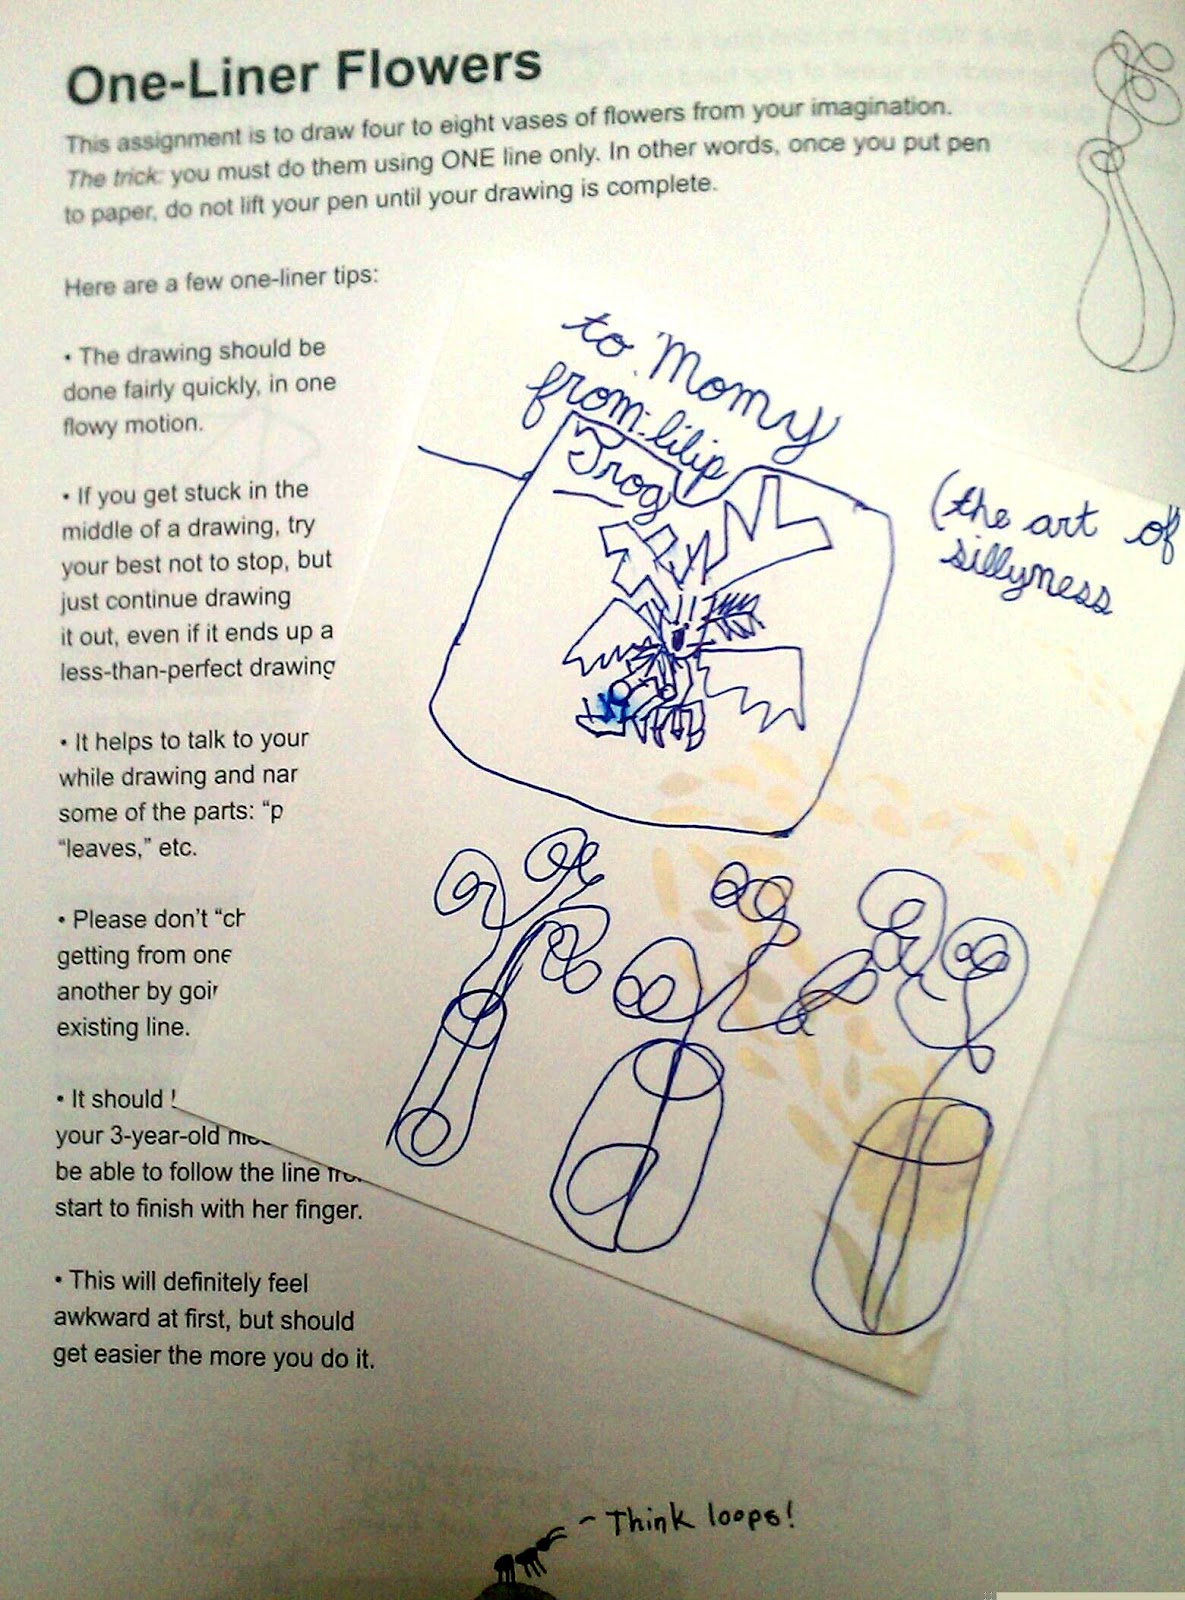 One-Liner Flowers
This assignment is to draw four to eight vases of flowers from your imagination.
The trick: you must do them using ONE line only. In other words, once you put pen
to paper, do not lift your pen until your drawing is complete.
Here are a few one-liner tips:
• The drawing should be
done fairly quickly, in one
flowy motion.
• If you get stuck in the
middle of a drawing, try
your best not to stop, but
just continue drawing
it out, even if it ends up a
less-than-perfect drawing
• It helps to talk to your
while drawing and nar
some of the parts: “p
“leaves,” etc.
• Please don’t “ch
getting from one
another by goin
existing line.
• It should
your 3-year-old
be able to follow the line
start to finish with her finger.
• This will definitely feel
awkward at first, but should
get easier the more you do it.
to Momy
from: lilip
Trog
(the art of
sillyness
Think loops!